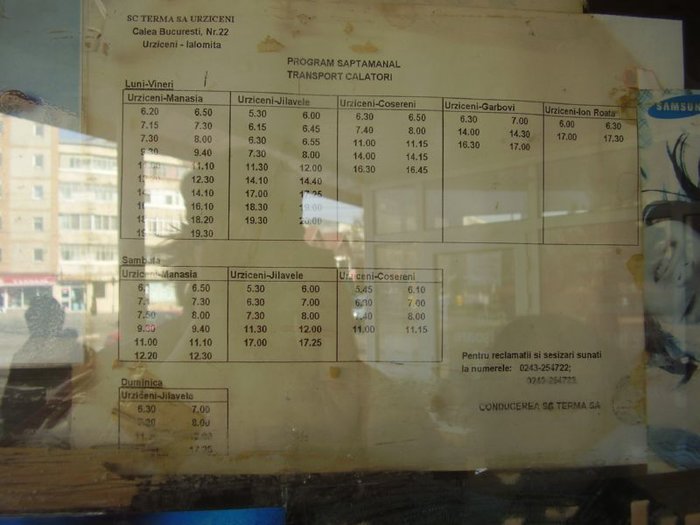 SC TERMA SA URZICENI
Calea Bucuresti, Nr.22
Urziceni - Ialomita
PROGRAM SAPTAMANAL
TRANSPORT CALATORI
Luni-Vineri
Urziceni-Manasia Urziceni-Jilavele Urziceni-Cosereni Urziceni-Garbovi Urziceni-Ion Roata
6.20 6.50 5.30 6.00 6.30 6.50 6.30 7.00 6.00 6.30
7.15 7.30 6.15 6.45 7.40 8.00 14.00 14.30 17.00 17.30
7.30 8.00 6.30 6.55 11.00 11.15 16.30 17.00
9.40 7.30 8.00 14.00 14.15
11.10 11.30 12.00 16.30 16.45
12.30 14.10 14.40
14.10 17.00 17.25
16.10 18.30 19.00
18.20 19.30 20.00
19.30
Sambata
Urziceni-Manasia Urziceni-Jilavele Urziceni-Cosereni
6.50 5.30 6.00 5.45 6.10
7.30 6.30 7.00 6.30 7.00
7.50 8.00 7.30 8.00 7.40 8.00
9.30 9.40 11.30 12.00 11.00 11.15
11.00 11.10 17.00 17.25
12.20 12.30
Duminica
Urziceni-Jilavele
6.30 7.00
8.00
Pentru reclamatii si sesizari sunati
la numerele: 0243-254722;
CONDUCEREA SC TERMA SA
SAMSUNG